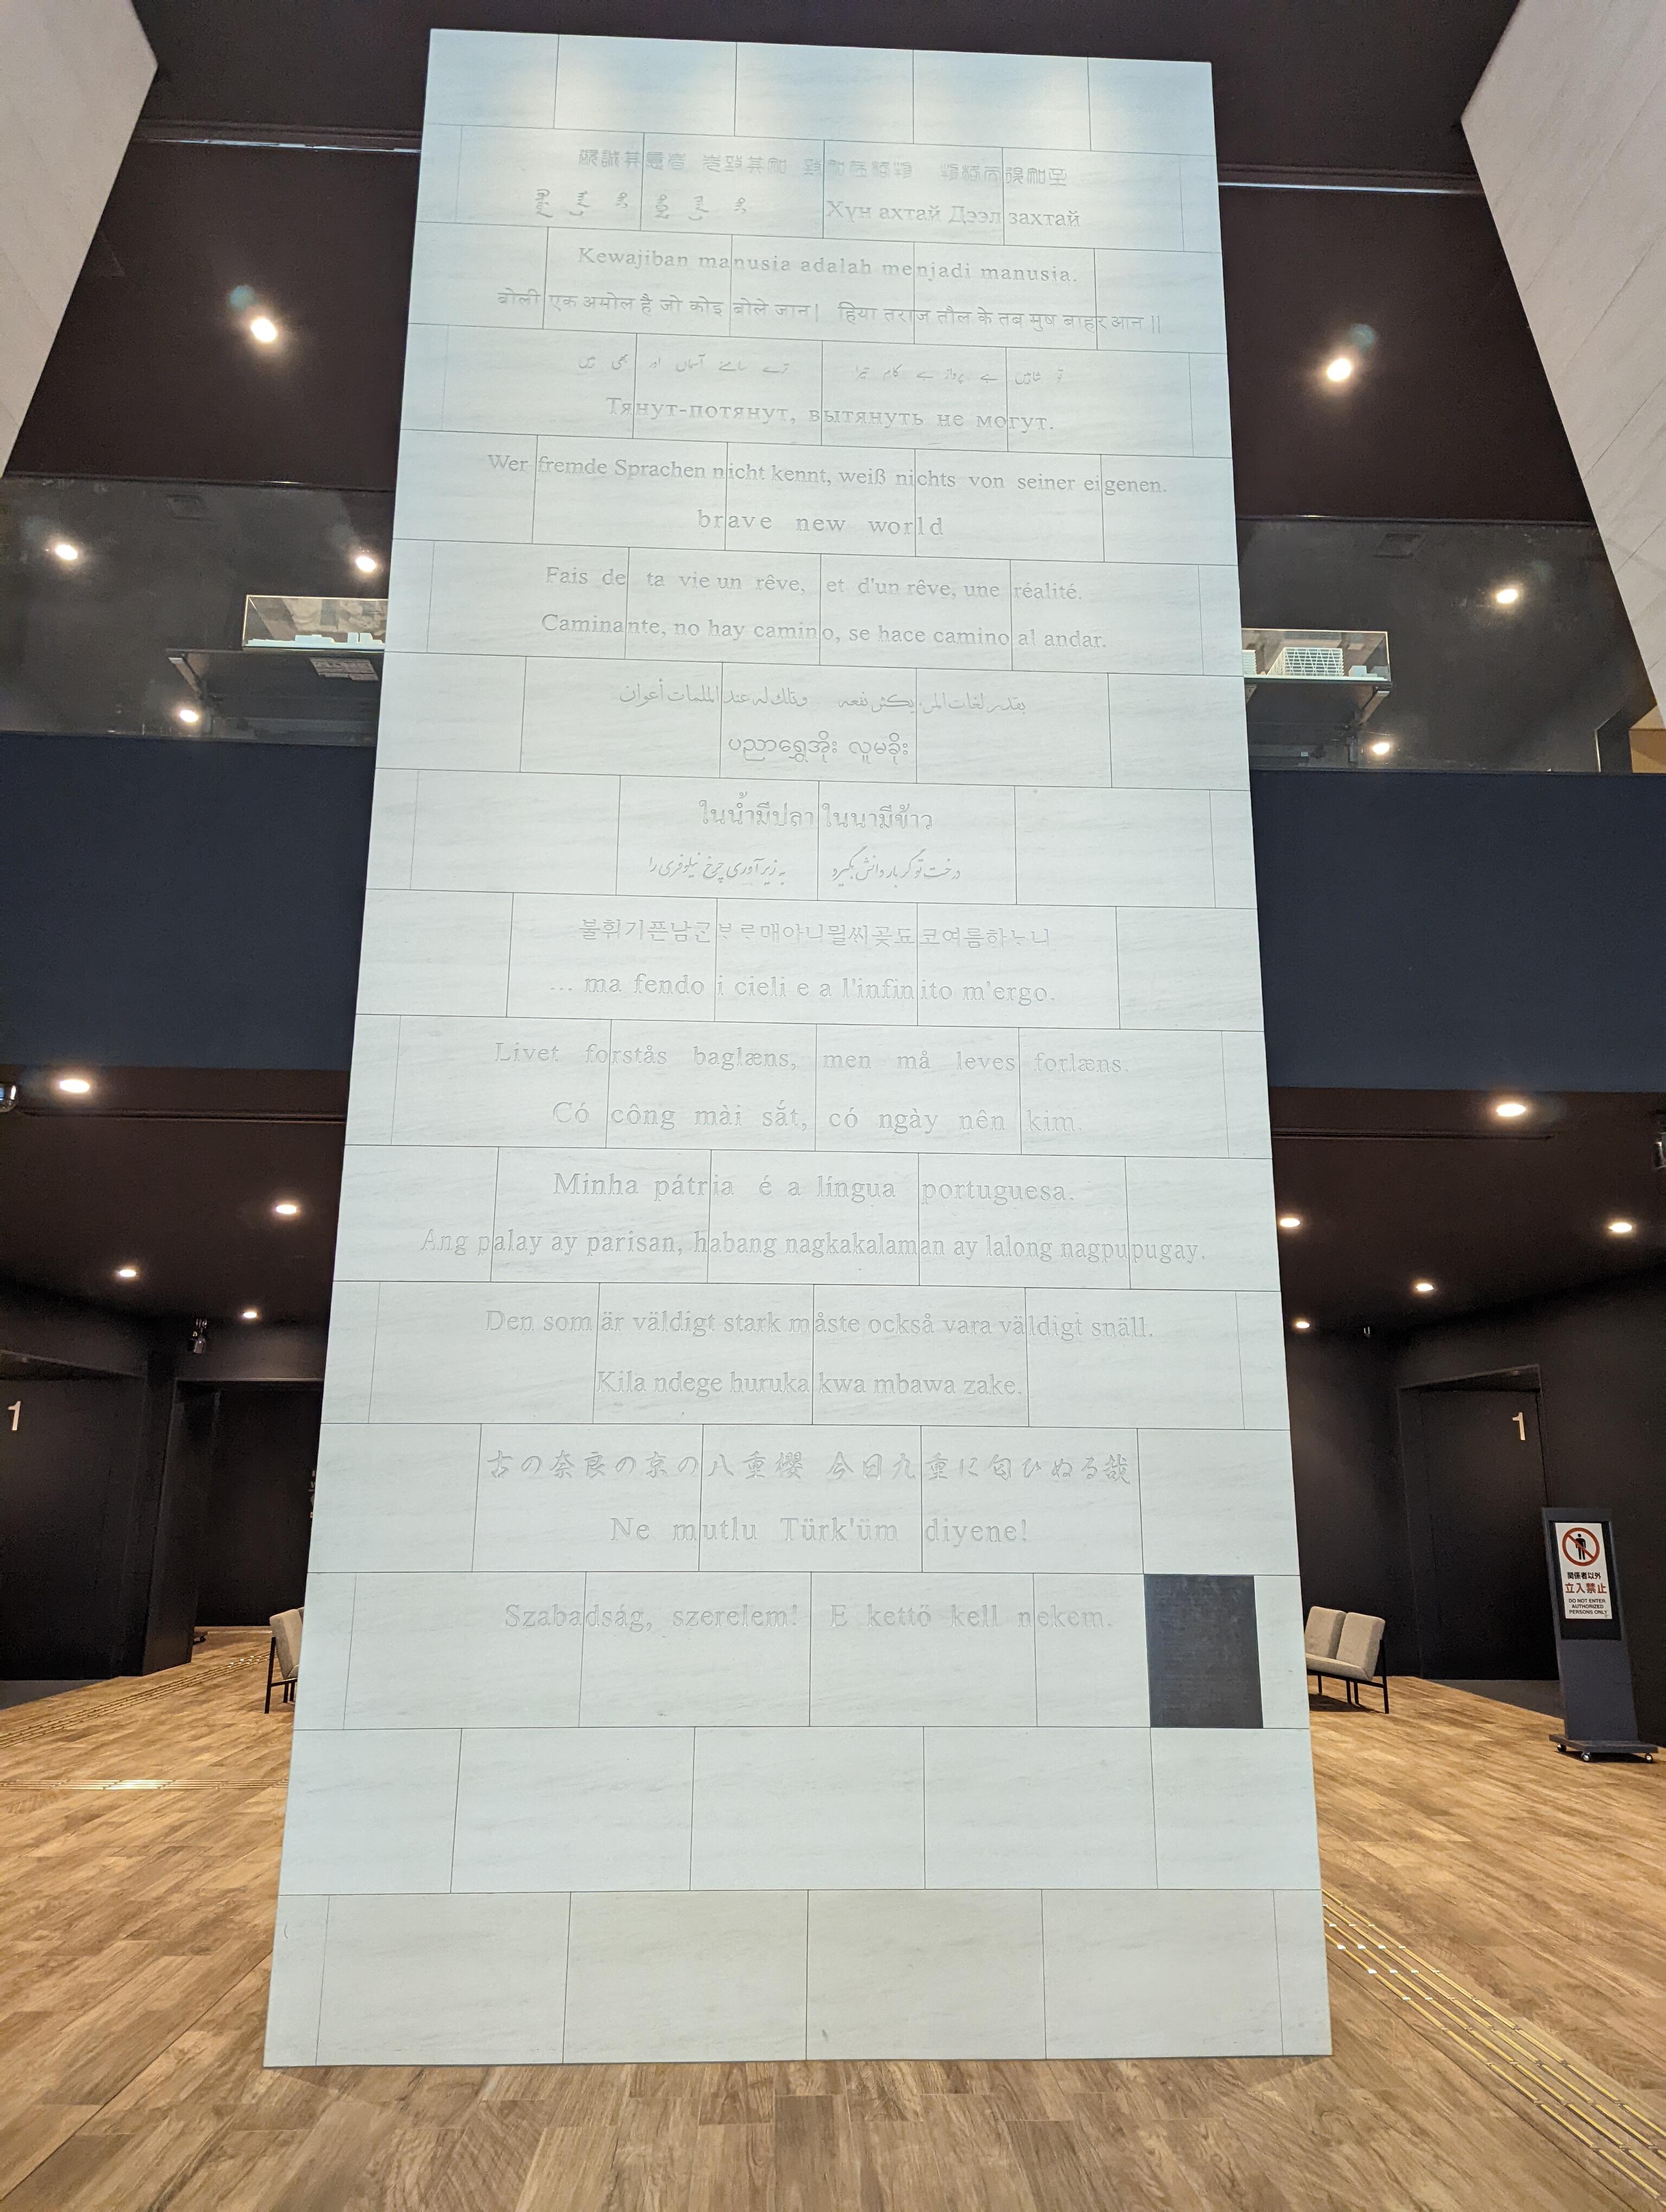 欲誠其意者 先致其知 致知在格物 物格而後知至
Хүн ахтай Дээл захтай
Kewajiban manusia adalah menjadi manusia.
बोली एक अमोल है जो कोइ बोले जान| हिया तराज तौल के तब मुष बाहर आन ||
تو شاہیں ہے پرواز ہے کام تیرا ترے سامنے آسماں اور بھی ہیں
Тянут-потянут, вытянуть не могут.
Wer fremde Sprachen nicht kennt, weiß nichts von seiner eigenen.
brave new world
Fais de ta vie un rêve, et d'un rêve, une réalité.
Caminante, no hay camino, se hace camino al andar.
بقدر لغات المرء يكثر نفعه وتلك له عند الملمات أعوان
ပညာရွှေအိုး လူမခိုး
ในน้ำมีปลา ในนามีข้าว
درخت تو گر بار دانش بگیرد به زیر آوری چرخ نیلوفری را
불휘기픈남ᄀᆞᆫᄇᆞᄅᆞ매아니뮐씨곶됴코여름하ᄂᆞ니
... ma fendo i cieli e a l'infinito m'ergo.
Livet forstås baglæns, men må leves forlæns.
Có công mài sắt, có ngày nên kim.
Minha pátria é a língua portuguesa.
Ang palay ay parisan, habang nagkakalaman ay lalong nagpupugay.
Den som är väldigt stark måste också vara väldigt snäll.
Kila ndege huruka kwa mbawa zake.
古の奈良の京の八重櫻 今日九重に匂ひぬる哉
Ne mutlu Türk'üm diyene!
Szabadság, szerelem! E kettő kell nekem.
1
1
関係者以外
立入禁止
DO NOT ENTER
AUTHORIZED
PERSONS ONLY